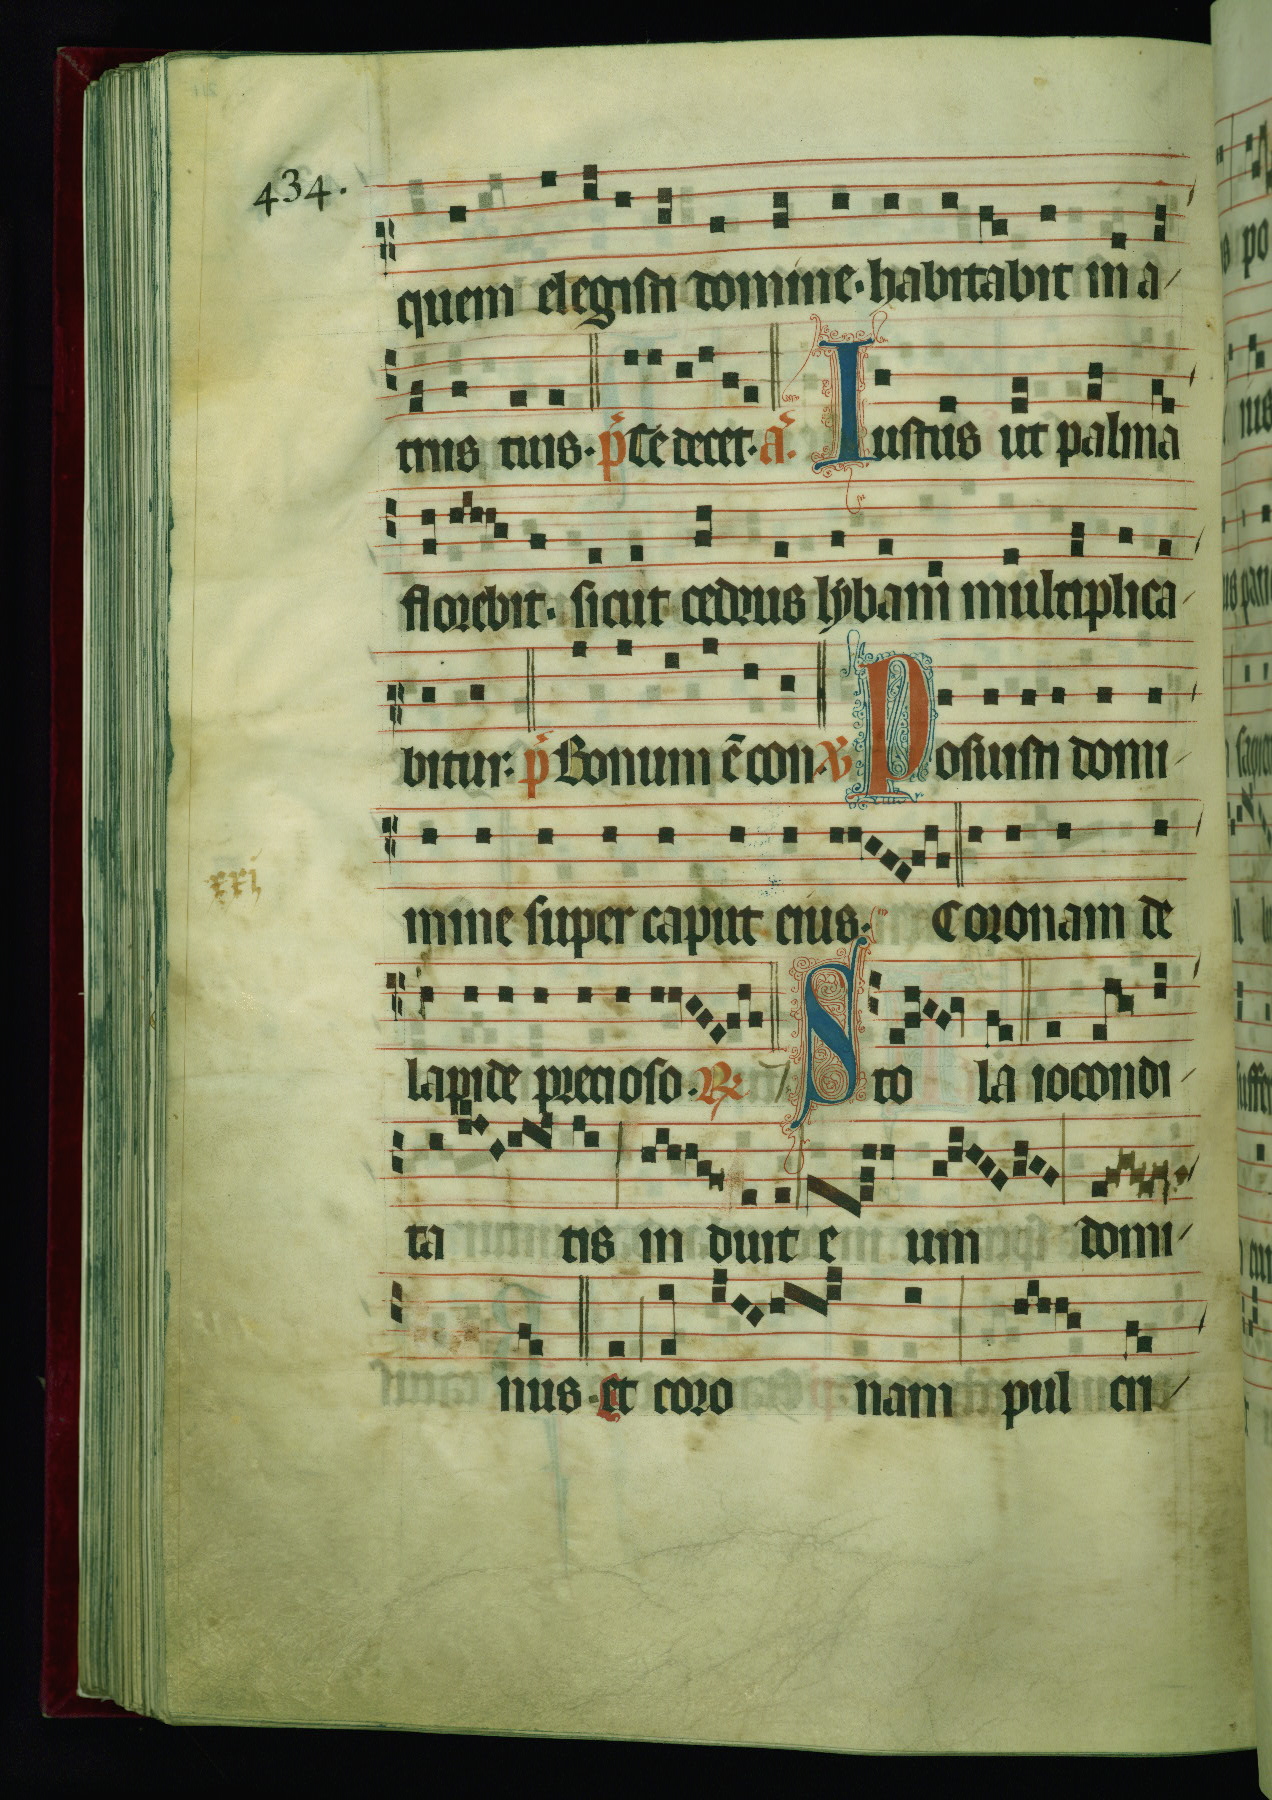 434.
quem elegisti domine. habitabit in a
triis tuis. p̄ Te decet. a̅. Iustus ut palma
florebit. sicut cedrus lybani multiplica
bitur: p̄ Bonum ē con. V Posuisti domi
mine super caput eius. Coronam de
xxi
lapide precioso. R 7. Sto la iocondi
ta tis in duit e um domi
nus. et coro nam pul cri